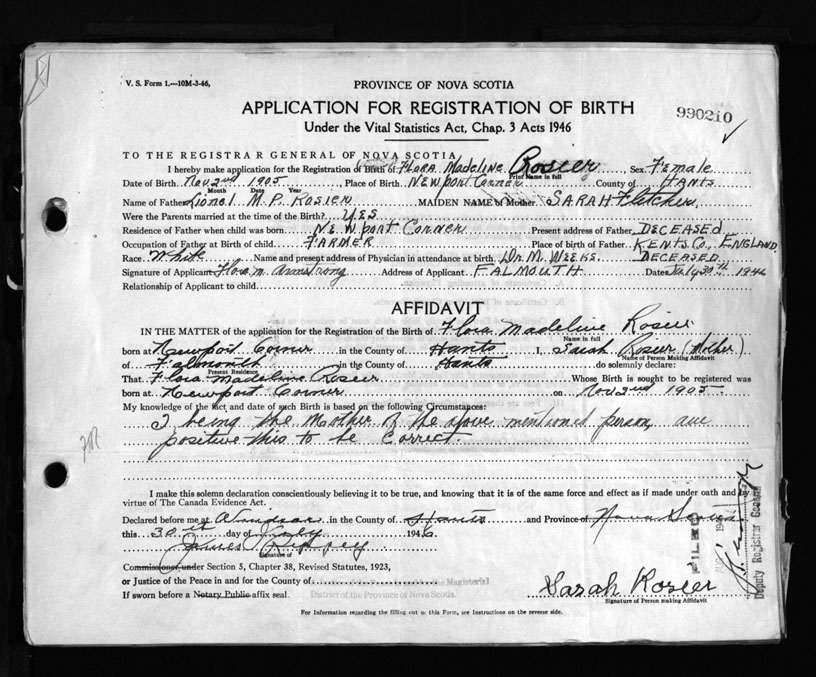 V. S. Form 1.—10M-3-46,
PROVINCE OF NOVA SCOTIA
APPLICATION FOR REGISTRATION OF BIRTH
990210
Under the Vital Statistics Act, Chap. 3 Acts 1946
TO THE REGISTRAR GENERAL OF NOVA SCOTIA
I hereby make application for the Registration of Birth of FLORA MADELINE Rosier, Sex FEMALE
Print Name in full
Date of Birth Nov 2nd 1905, Place of Birth NEWPORT CORNER County of HANTS
Month Date Year
Name of Father Lionel M. P. ROSIER MAIDEN NAME of Mother SARAH FLETCHER
Were the Parents married at the time of the Birth? YES
Residence of Father when child was born NEWPORT CORNER Present address of Father DECEASED
Occupation of Father at Birth of child FARMER Place of birth of Father KENTS CO., ENGLAND
Race White Name and present address of Physician in attendance at birth DR. M. WEEKS. DECEASED
Signature of Applicant Flora M. Armstrong Address of Applicant FALMOUTH Date July 30th 1946
Relationship of Applicant to child
AFFIDAVIT
IN THE MATTER of the application for the Registration of the Birth of Flora Madeline Rosier
Name in full
born at Newport Corner in the County of Hants I, Sarah Rosier (Mother)
Name of Person Making Affidavit
of Falmouth in the County of Hants do solemnly declare:
Present Residence
That Flora Madeline Rosier Whose Birth is sought to be registered was
born at Newport Corner on Nov 2nd 1905
My knowledge of the fact and date of such Birth is based on the following Circumstances:
I being the Mother of the above mentioned person, am
positive this to be Correct.
I make this solemn declaration conscientiously believing it to be true, and knowing that it is of the same force and effect as if made under oath and by
virtue of The Canada Evidence Act.
Declared before me at Windsor in the County of Hants and Province of Nova Scotia
this 30th day of July 1946
James
Signature of
Commissioner under Section 5, Chapter 38, Revised Statutes, 1923,
or Justice of the Peace in and for the County of
If sworn before a Notary Public affix seal.
District of the Province of Nova Scotia.
Sarah Rosier
Signature of Person making Affidavit
For Information regarding the filling out of this Form, see Instructions on the reverse side.
FILED
Deputy Registrar General